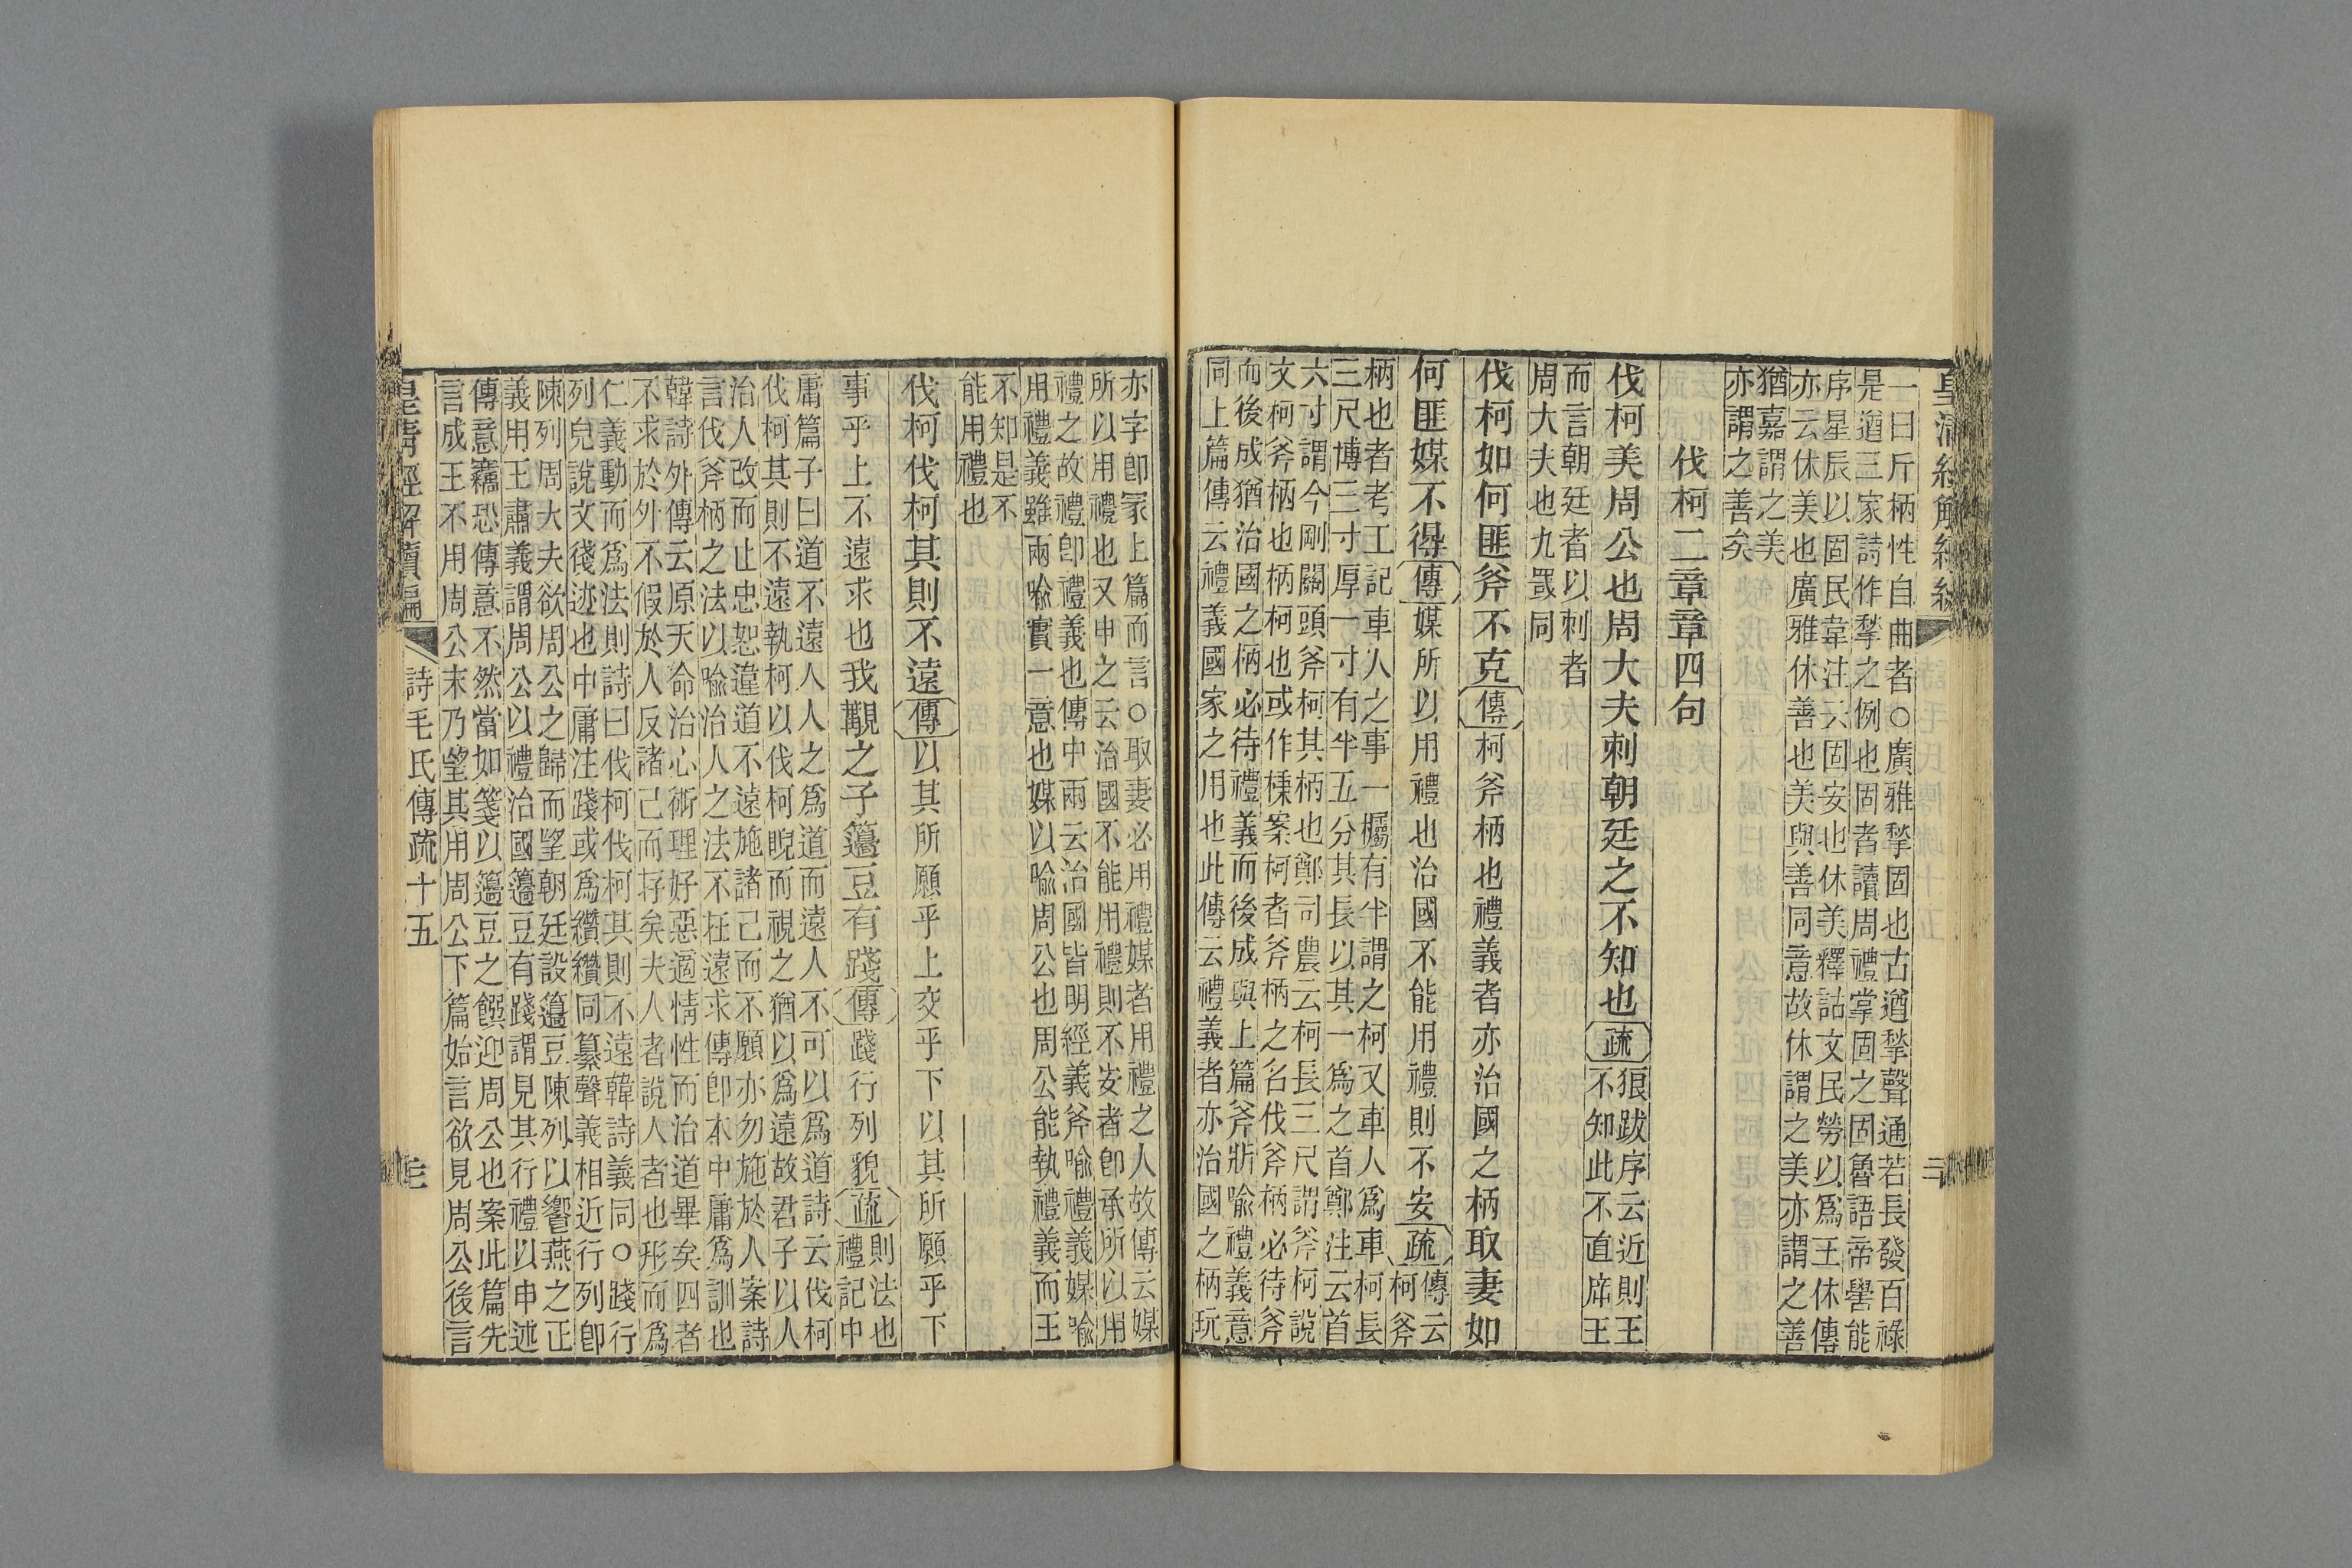 一曰斤柄性自曲者○廣雅揫固也古遒揫聲通若長發百祿
是遒三家詩作揫之例也固者讀周禮掌固之固魯語帝嚳能
序星辰以固民韋注云固安也休美釋詁文民勞以爲王休傳
亦云休美也廣雅休善也美與善同意故休謂之美亦謂之善
猶嘉謂之美
亦謂之善矣
伐柯二章章四句
伐柯美周公也周大夫刺朝廷之不知也疏狼跋序云近則王
不知此不直席王
而言朝廷者以刺者
周大夫也九罭同
伐柯如何匪斧不克傳柯斧柄也禮義者亦治國之柄取妻如
何匪媒不得傳媒所以用禮也治國不能用禮則不安疏傳云
柯斧
柄也者考工記車人之事一欘有半謂之柯又車人爲車柯長
三尺博三寸厚一寸有半五分其長以其一爲之首鄭注云首
六寸謂今剛關頭斧柯其柄也鄭司農云柯長三尺謂斧柯說
文柯斧柄也柄柯也或作棅案柯者斧柄之名伐斧柄必待斧
而後成猶治國之柄必待禮義而後成與上篇斧斨喻禮義意
同上篇傳云禮義國家之用也此傳云禮義者亦治國之柄玩
亦字卽冡上篇而言○取妻必用禮媒者用禮之人故傳云媒
所以用禮也又申之云治國不能用禮則不安者卽承所以用
禮之故禮卽禮義也傳中兩云治國皆明經義斧喻禮義媒喻
用禮義雖兩喻實一意也媒以喻周公也周公能執禮義而王
不知是不
能用禮也
伐柯伐柯其則不遠傳以其所願乎上交乎下以其所願乎下
事乎上不遠求也我覯之子籩豆有踐傳踐行列貌疏則法也
禮記中
庸篇子曰道不遠人人之爲道而遠人不可以爲道詩云伐柯
伐柯其則不遠執柯以伐柯睨而視之猶以爲遠故君子以人
治人改而止忠恕違道不遠施諸己而不願亦勿施於人案詩
言伐斧柄之法以喻治人之法不在遠求傳卽本中庸爲訓也
韓詩外傳云原天命治心術理好惡適情性而治道畢矣四者
不求於外不假於人反諸己而存矣夫人者說人者也形而爲
仁義動而爲法則詩曰伐柯伐柯其則不遠韓詩義同○踐行
列皃說文後迹也中庸注踐或爲纘纘同纂聲義相近行列卽
陳列周大夫欲周公之歸而望朝廷設籩豆陳列以饗燕之正
義用王肅義謂周公以禮治國籩豆有踐謂見其行禮以申述
傳意竊恐傳意不然當如箋以籩豆之饌迎周公也案此篇先
言成王不用周公末乃望其用周公下篇始言欲見周公後言
皇淸經解續編
詩毛氏傳疏十五